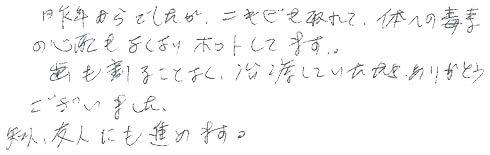 昨年からでしたが、ニキビも取れて、体への毒素
の心配もなくなりホットしてます。
歯も割ることなく、治療していただき、ありがとう
ございました。
知人、友人にも進めます。